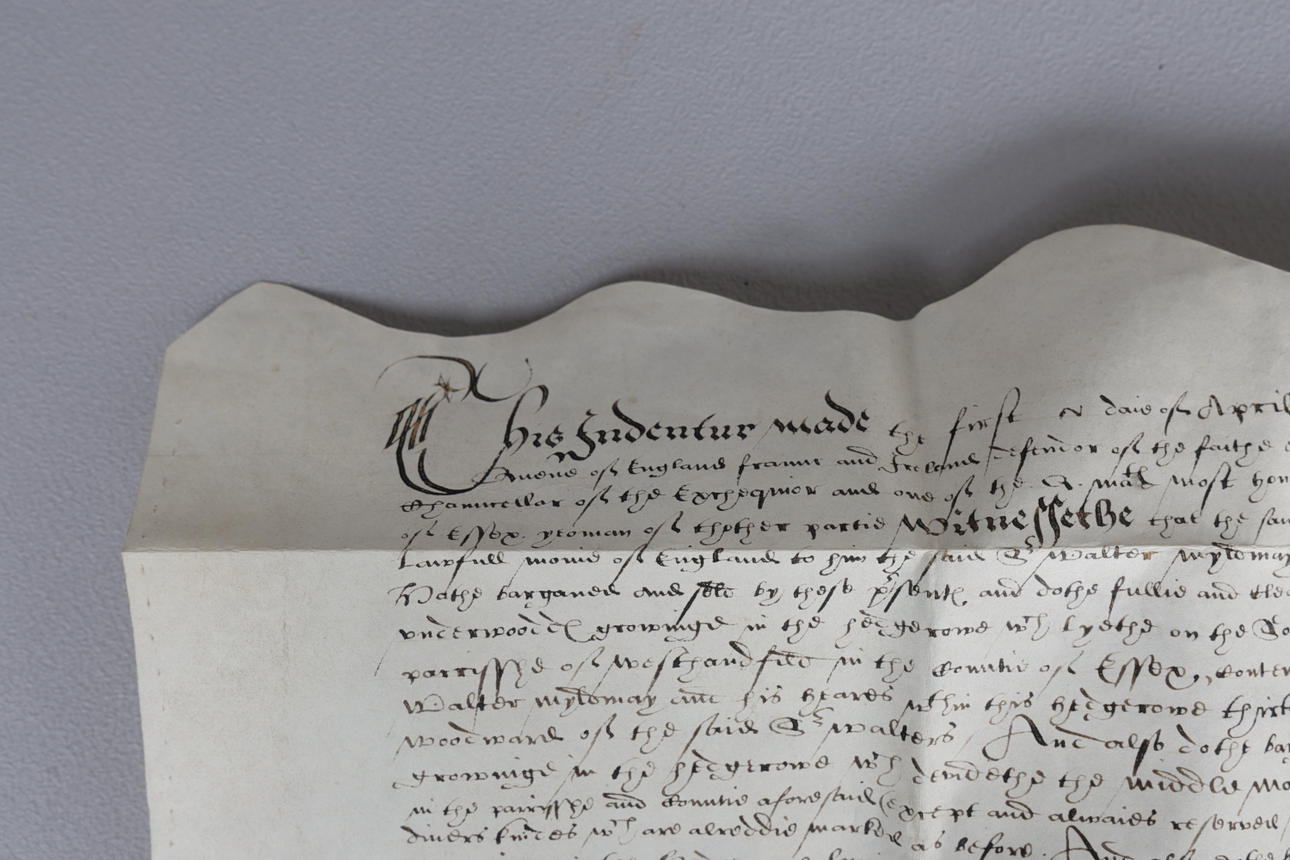 This Indentur made the first daie of April
Quene of England fraunce and Ireland defendor of the faithe
Chauncellor of the Exchequior and one of the Q. matis most hon
of Essex yeoman of thother partie Witnessethe that the sai
Lawfull monie of England to him the said Sr Walter Myldmay
Hathe barganed and sold by these prsents and dothe fullie and cle
vnderwoodes growinge in the hedgerowe wch lyethe on the So
parrisshe of westhandfild in the Countie of Essex, Conten
Walter Myldmay and his heares wthin this hedgerowe thirt
woodward of the said Sr Walters And also dothe bar
growinge in the hedgerowe wch devidethe the middle Mo
in the parrisshe and Countie aforesaid (except and alwaies reserved
divers wch are alreddie marked as before. And